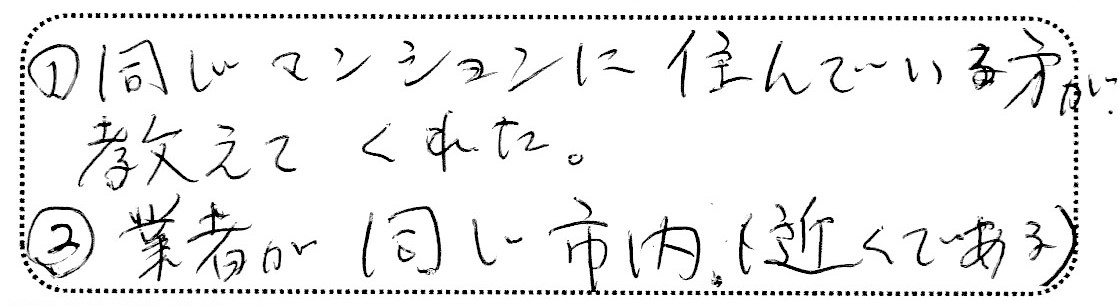 ①同じマンションに住んでいる方が
教えてくれた。
②業者が同じ市内、(近くである)